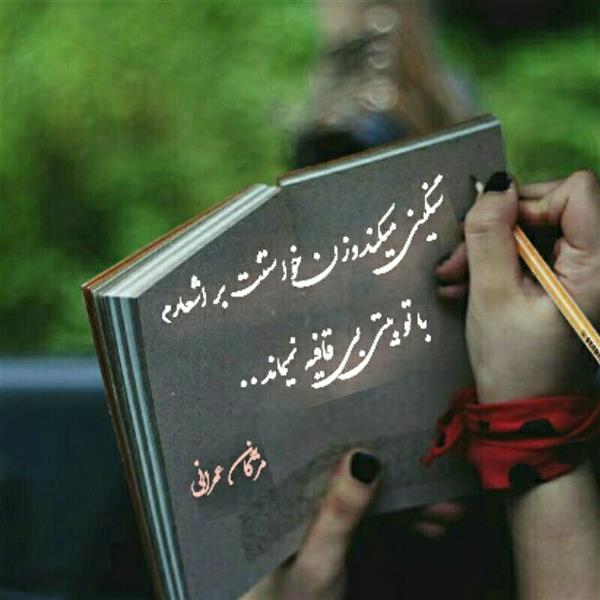 سنگینی میکند وزن خواستنت بر اشعارم
با تو بیتی بی قافیه نمیماند..
مژگان عمرانی